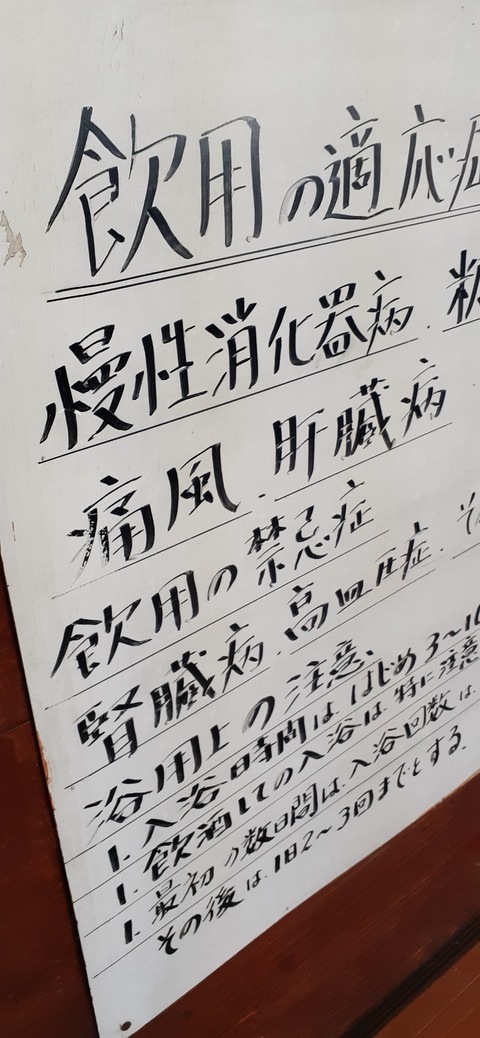 飲用の適応症
慢性消化器病.
痛風.肝臓病
飲用の禁忌症
腎臓病.高血圧症.
浴用上の注意、
1. 入浴時間は はじめ3〜10
1. 飲酒しての入浴は 特に注意
1. 最初の数日間は、入浴回数は
その後は 1日2〜3回までとする.